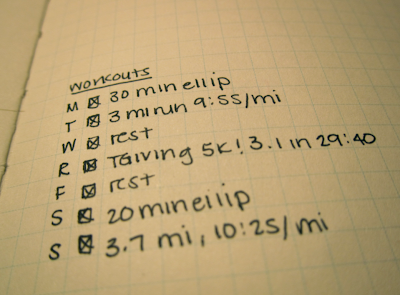 workouts
M ☒ 30 min ellip
T ☒ 3 mi run 9:55/mi
W ☒ rest
R ☒ TGiving 5K! 3.1 in 29:40
F ☒ rest
S ☒ 20 min ellip
S ☒ 3.7 mi, 10:25/mi